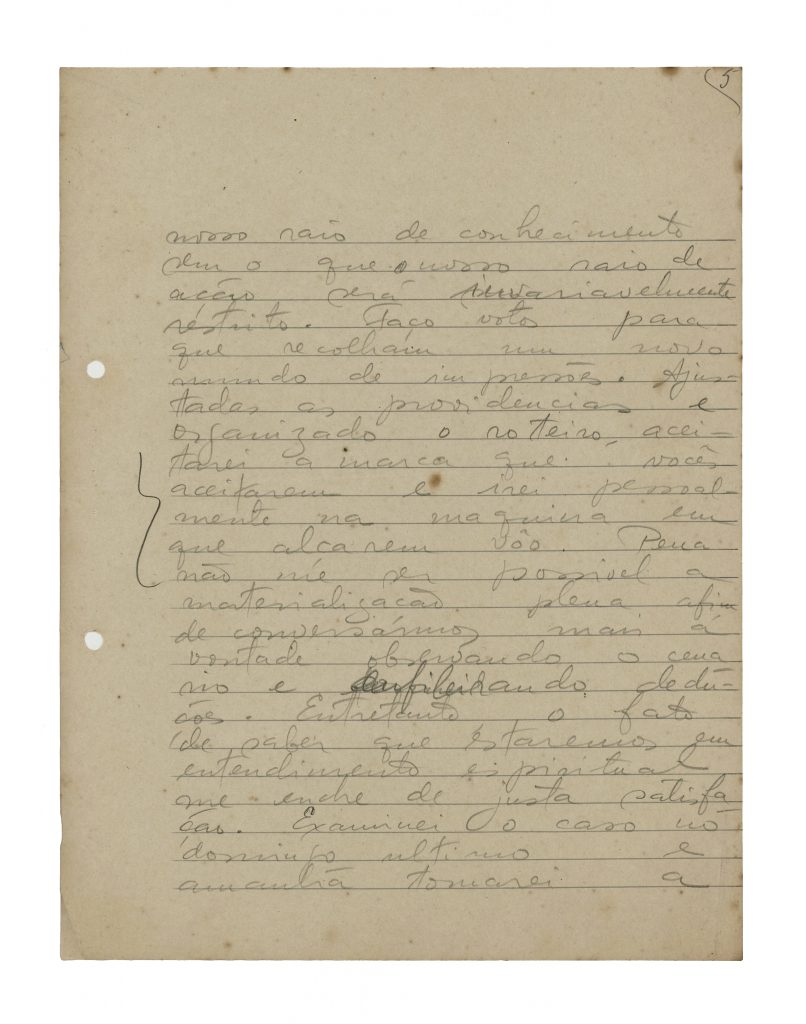 5
nosso raio de conhecimento
sem o que o nosso raio de
acção será invariavelmente
réstrito. Faço votos para
que recolham um novo
mundo de impressões. Ajus-
tadas as providencias e
organizado o roteiro, acei-
tarei a marca que vocês
aceitarem e irei pessoal-
mente na maquina em
que alçarem vôo. Pena
não me ser possivel a
materialização plena afim
de conversármos mais á
vontade observando o cena
rio e enfileirando dedu-
ções. Entretanto o fato
de saber que estaremos em
entendimento espiritual
me enche de justa satisfa-
ção. Examinei o caso no
domingo ultimo e
amanhã tomarei a